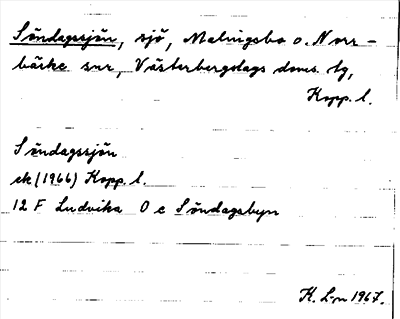 Söndagssjön, sjö, Malingsbo o. Norr-
bärke snr, Västerbergslags doms. tg,
Kopp. l.
Söndagssjön
ek (1966) Kopp. l.
12 F Ludvika 0 c Söndagsbyn
K. L-n 1967.